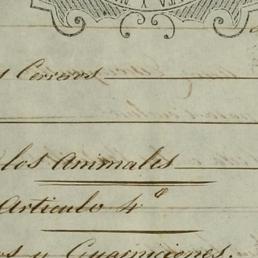 y Cerreros
los Animales
Articulo 4º
y Guarniciones.